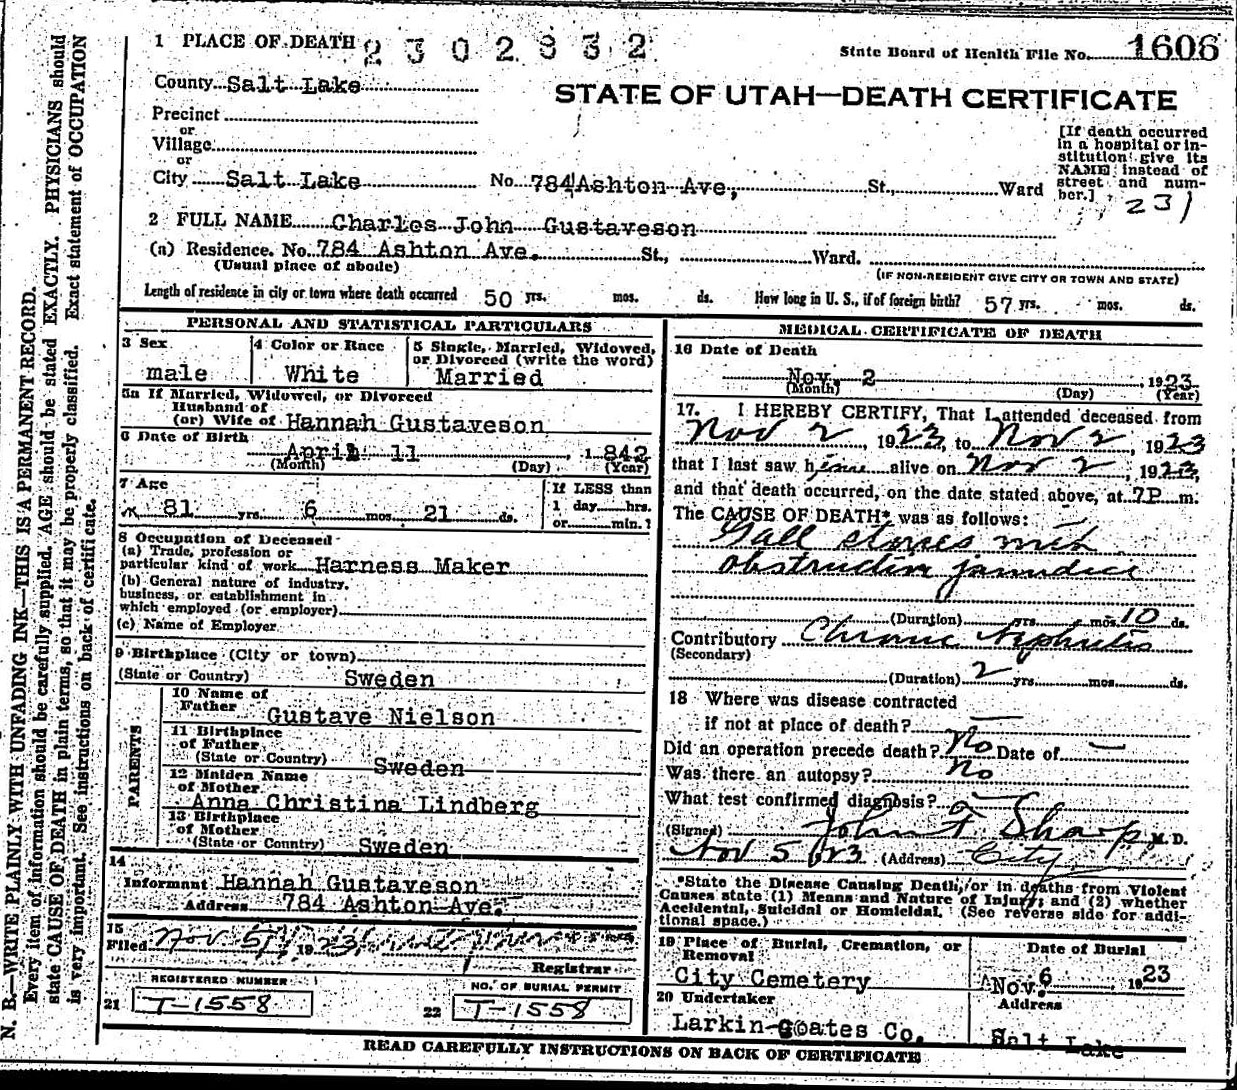 1 PLACE OF DEATH 2302832
State Board of Health File No. 1606
County Salt Lake
STATE OF UTAH—DEATH CERTIFICATE
Precinct
or
Village
or
City Salt Lake No. 784 Ashton Ave, St., Ward
[If death occurred in a hospital or in-
stitution give its
NAME instead of
street and num-
ber.]
231
2 FULL NAME Charles John Gustaveson
(a) Residence. No. 784 Ashton Ave. St., Ward.
(Usual place of abode)
(IF NON-RESIDENT GIVE CITY OR TOWN AND STATE)
Length of residence in city or town where death occurred 50 yrs. mos. ds. How long in U. S., if of foreign birth? 57 yrs. mos. ds.
PERSONAL AND STATISTICAL PARTICULARS
3 Sex
male
4 Color or Race
White
5 Single, Married, Widowed,
or Divorced (write the word)
Married
5a If Married, Widowed, or Divorced
Husband of
(or) Wife of Hannah Gustaveson
6 Date of Birth
April 11, 1842
(Month) (Day) (Year)
7 Age
81 yrs. 6 mos. 21 ds.
If LESS than
1 day hrs.
or min.?
8 Occupation of Deceased
(a) Trade, profession or
particular kind of work Harness Maker
(b) General nature of industry,
business, or establishment in
which employed (or employer)
(c) Name of Employer
9 Birthplace (City or town)
(State or Country) Sweden
PARENTS
10 Name of
Father Gustave Nielson
11 Birthplace
of Father
(State or Country) Sweden
12 Maiden Name
of Mother
Anna Christina Lindberg
13 Birthplace
of Mother
(State or Country) Sweden
14
Informant Hannah Gustaveson
Address 784 Ashton Ave.
15
Filed Nov 5, 1923
Registrar
REGISTERED NUMBER
21 T-1558
NO. OF BURIAL PERMIT
22 T-1558
MEDICAL CERTIFICATE OF DEATH
16 Date of Death
Nov. 2, 1923
(Month) (Day) (Year)
17. I HEREBY CERTIFY, That I attended deceased from
Nov 2, 1923, to Nov 2, 1923
that I last saw him alive on Nov 2, 1923,
and that death occurred, on the date stated above, at 7P m.
The CAUSE OF DEATH* was as follows:
Gall stones with
obstructive jaundice
(Duration) yrs. mos. 10 ds.
Contributory Chronic Nephritis
(Secondary)
(Duration) 2 yrs. mos. ds.
18 Where was disease contracted
if not at place of death? —
Did an operation precede death? No Date of —
Was there an autopsy? No
What test confirmed diagnosis? —
(Signed) John F Sharp M. D.
Nov 5 1923 (Address) City
*State the Disease Causing Death, or in deaths from Violent
Causes state (1) Means and Nature of Injury; and (2) whether
Accidental, Suicidal or Homicidal. (See reverse side for addi-
tional space.)
19 Place of Burial, Cremation, or
Removal
City Cemetery
Date of Burial
Nov. 6 1923
20 Undertaker
Larkin-Goates Co.
Address
Salt Lake
READ CAREFULLY INSTRUCTIONS ON BACK OF CERTIFICATE
N. B.—WRITE PLAINLY WITH UNFADING INK—THIS IS A PERMANENT RECORD.
Every item of information should be carefully supplied. AGE should be stated EXACTLY. PHYSICIANS should
state CAUSE OF DEATH in plain terms, so that it may be properly classified. Exact statement of OCCUPATION
is very important. See instructions on back of certificate.